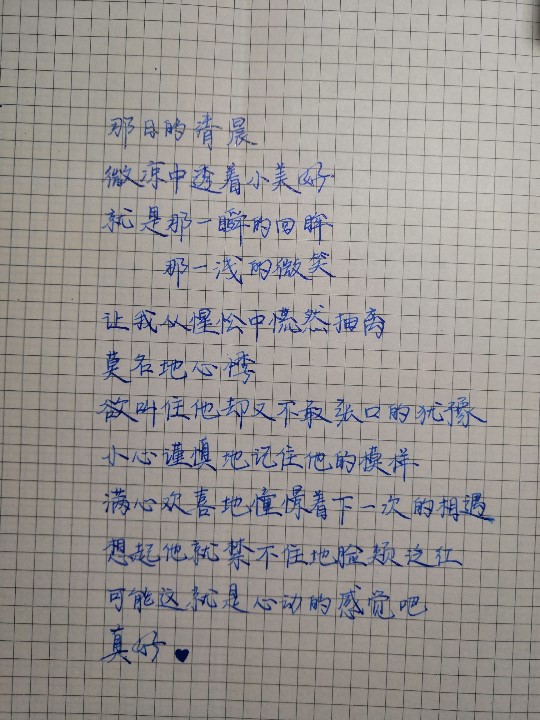 那日的清晨
微凉中透着小美好
就是那一瞬的回眸
那一浅的微笑
让我从惺忪中慌然抽离
莫名地心悸
欲叫住他却又不敢张口的犹豫
小心谨慎地记住他的模样
满心欢喜地憧憬着下一次的相遇
想起他就禁不住地脸颊泛红
可能这就是心动的感觉吧
真好